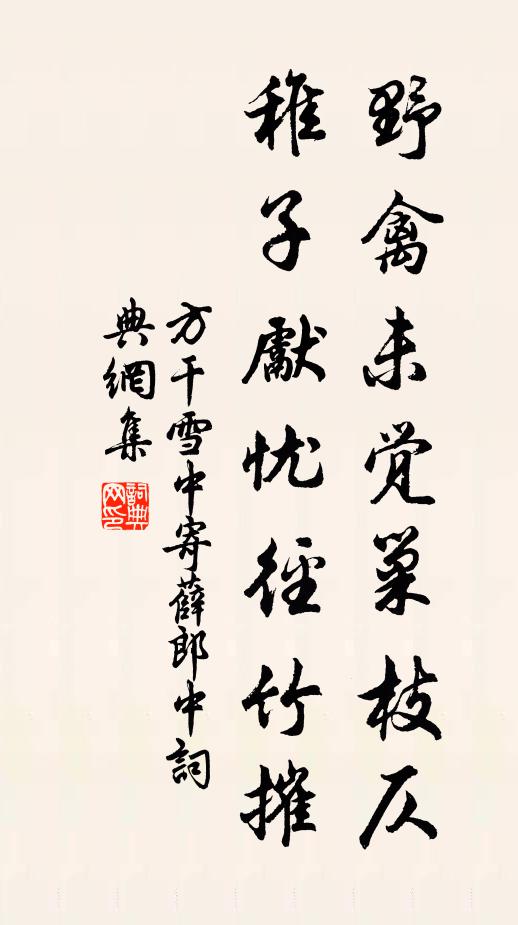 野禽未觉巢枝仄
稚子獻忧径竹摧
方干雪中寄薛郎中詞
典網集
詞典網印